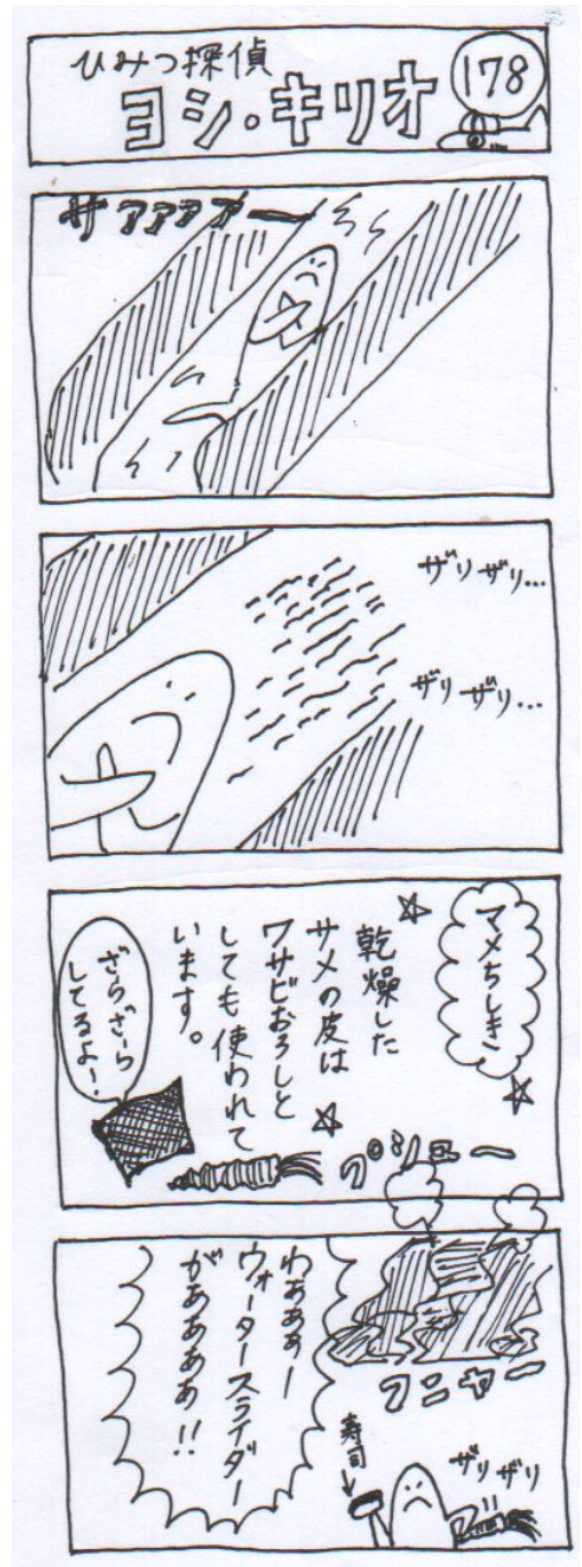 ひみつ探偵
ヨシ・キリオ
178
ザァァァァー
ザリザリ…
ザリザリ…
マメちしき
乾燥した
サメの皮は
ワサビおろしと
しても使われて
います。
ざらざーら
してるよー!
プシュー
わぁぁぁー
ウォータースライダー
がぁぁぁぁ!!
フニャー
寿司
ザリザリ